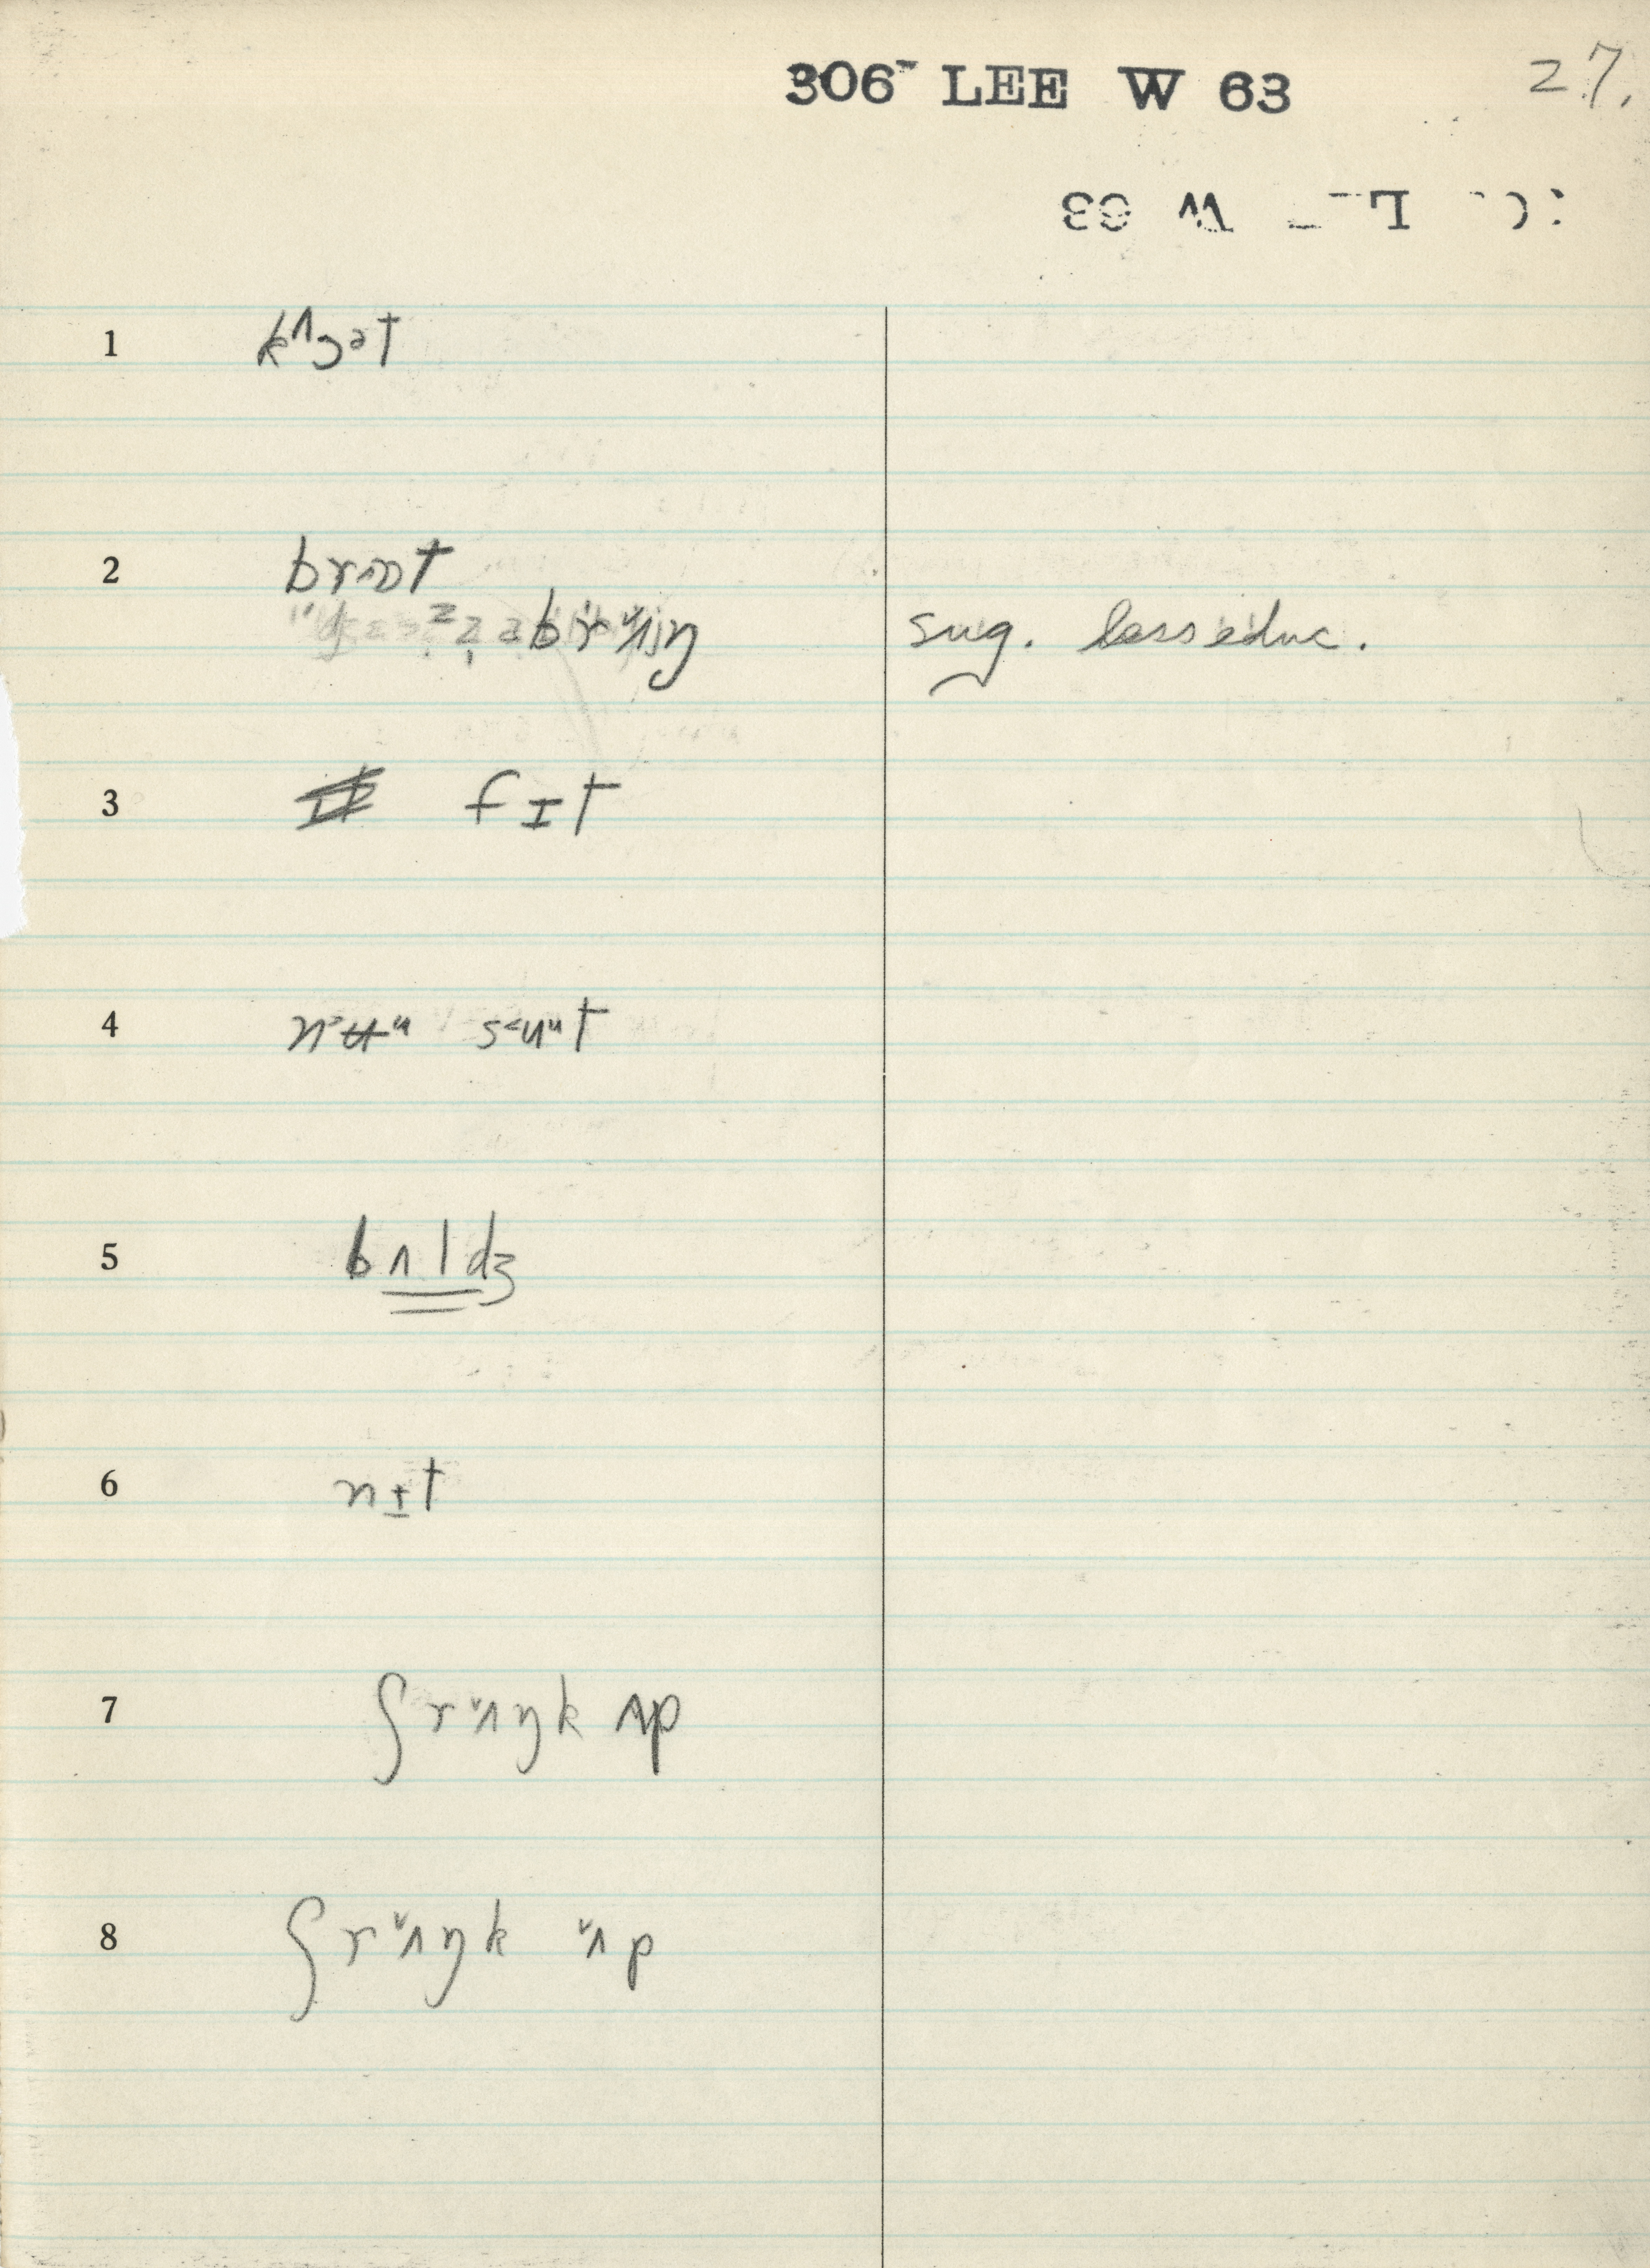 306 LEE W 63
27.
1 kʌɔət
2 brɔt
brʌŋ sug. less educ.
3 fɪt
4 nʉu sʉut
5 bʌldʒ
6 nɨt
7 ʃrʌŋk ʌp
8 ʃrʌŋk ʌp